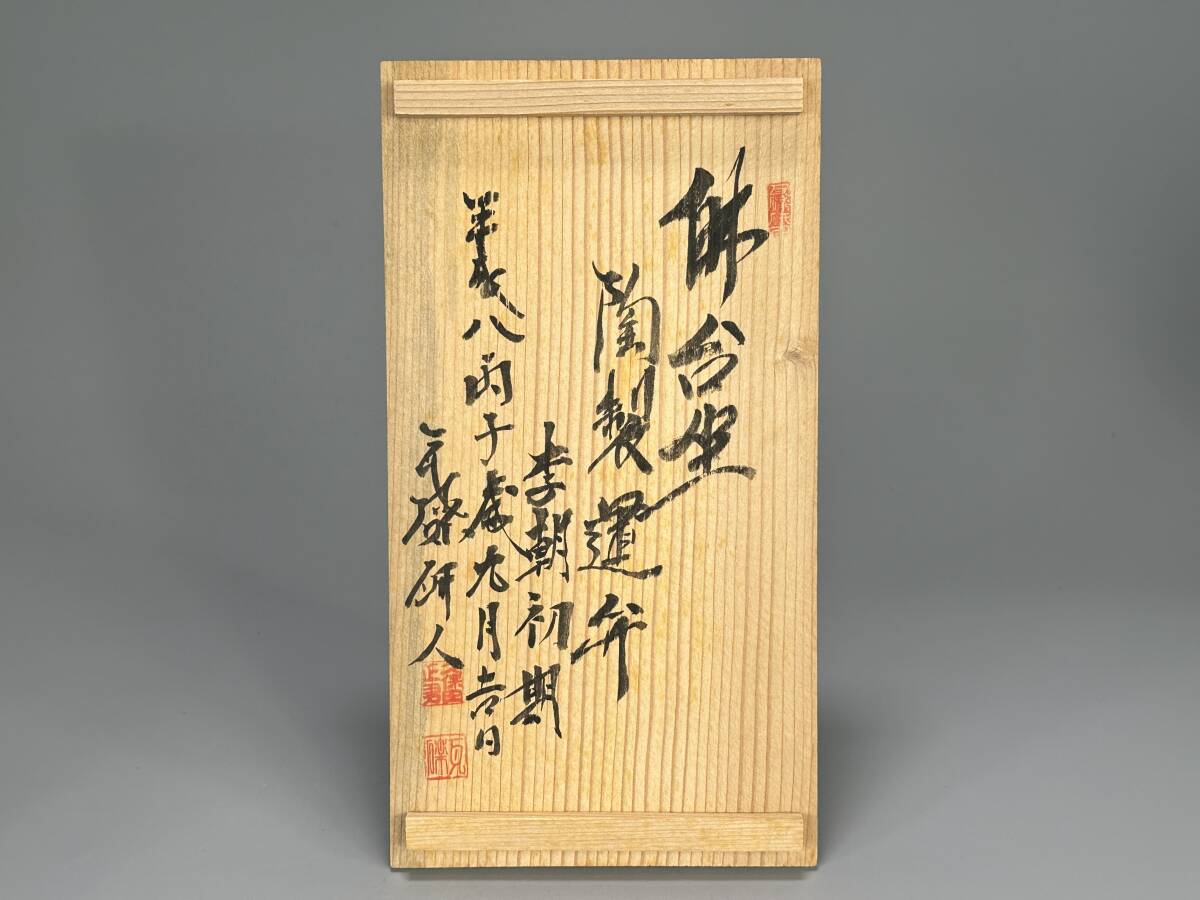 佛台坐
陶製蓮弁
李朝初期
平成八丙子歳九月吉日
瓦礫研人